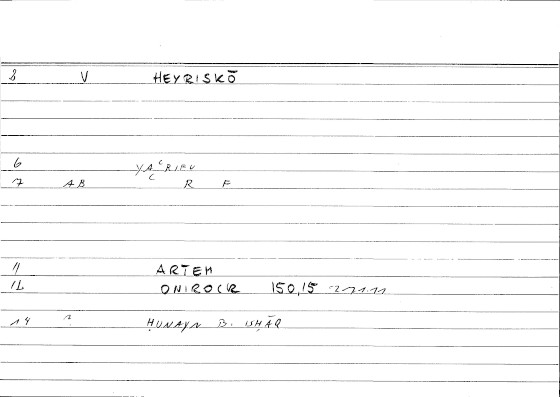 3 V HEYRISKŌ
6
7 AB R F
11 ARTEM
12 ONIROCR 150,15
14 ḤUNAYN B. ISḤĀQ